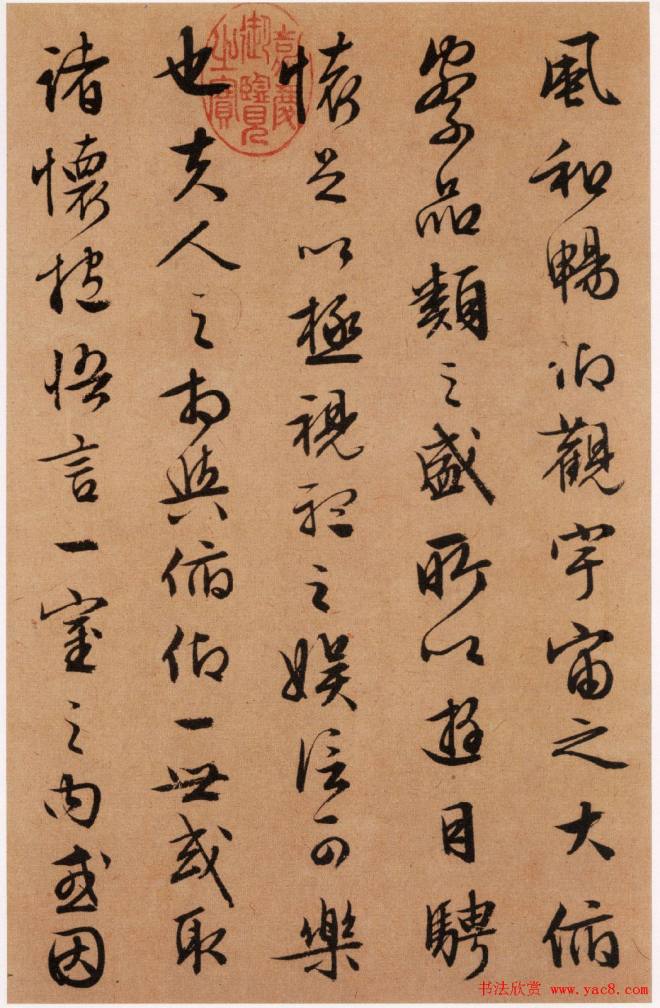 風和暢仰觀宇宙之大俯
察品類之盛所以遊目騁
懷足以極視聽之娛信可樂
也夫人之相與俯仰一世或取
諸懷抱悟言一室之內或因
嘉慶御覽之寶
书法欣赏 www.yac8.com